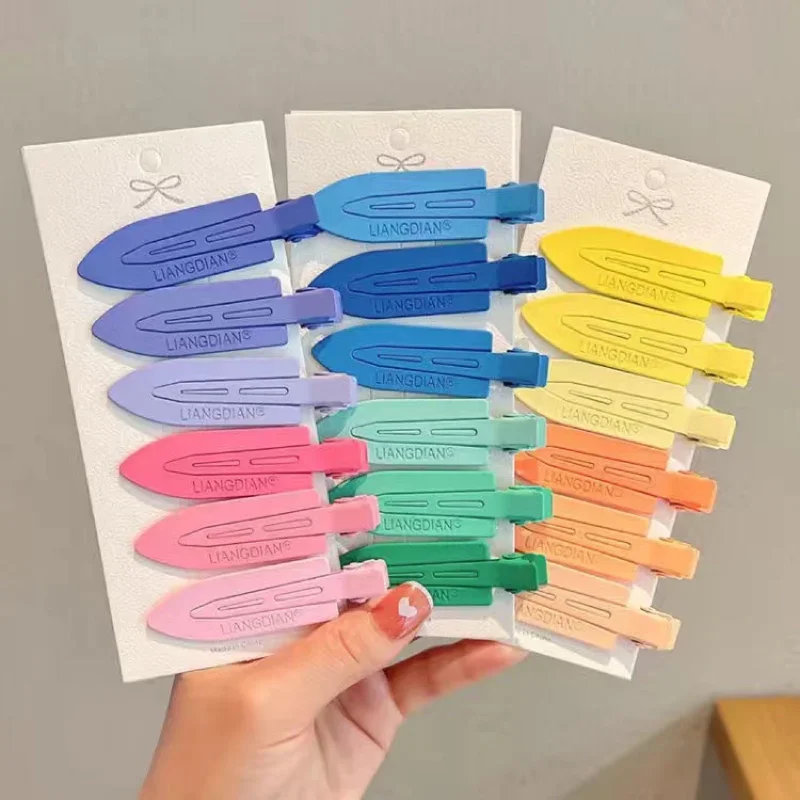 LIANGDIAN®
LIANGDIAN®
LIANGDIAN®
LIANGDIAN®
LIANGDIAN®
LIANGDIAN®
Made in China
LIANGDIAN®
LIANGDIAN®
LIANGDIAN®
LIANGDIAN®
LIANGDIAN®
LIANGDIAN®
LIANGDIAN®
LIANGDIAN®
LIANGDIAN®
LIANGDIAN®
LIANGDIAN®
LIANGDIAN®